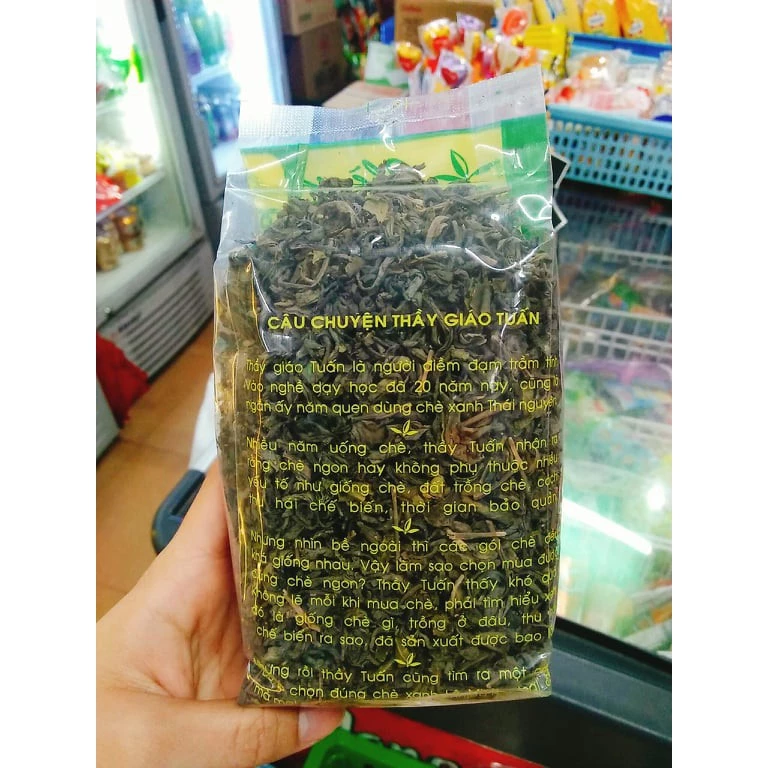 CÂU CHUYỆN THẦY GIÁO TUẤN
Thầy giáo Tuấn là người điềm đạm trầm tĩnh
Vào nghề dạy học đã 20 năm nay, cũng là
ngần ấy năm quen dùng chè xanh Thái nguyên
Nhiều năm uống chè, thầy Tuấn nhận ra
rằng chè ngon hay không phụ thuộc nhiều
yếu tố như giống chè, đất trồng chè, cách
thu hái chế biến, thời gian bảo quản
Nhưng nhìn bề ngoài thì các gói chè đều
khá giống nhau. Vậy làm sao chọn mua được
đúng chè ngon? Thầy Tuấn thấy khó quá
Không lẽ mỗi khi mua chè, phải tìm hiểu xem
đó là giống chè gì, trồng ở đâu, thu
chế biến ra sao, đã sản xuất được bao
Nhưng rồi thầy Tuấn cũng tìm ra một
chọn đúng chè xanh